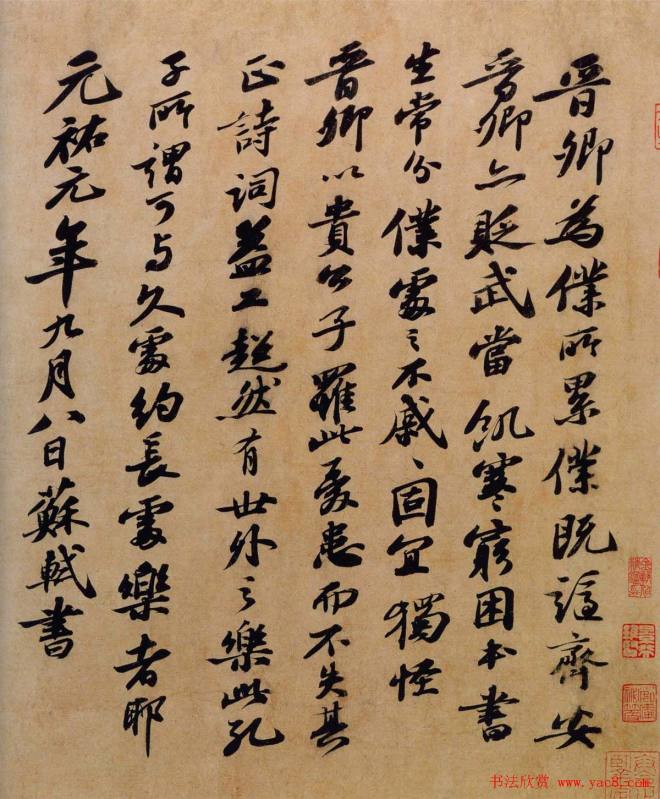 晉卿為僕所累僕既謫齊安
晉卿亦貶武當飢寒窮困本書
生常分僕處之不戚戚固宜獨怪
晉卿以貴公子罹此憂患而不失其
正詩詞益工超然有世外之樂此孔
子所謂可与久處約長處樂者耶
元祐元年九月八日蘇軾書
书法欣赏 www.yac8.com